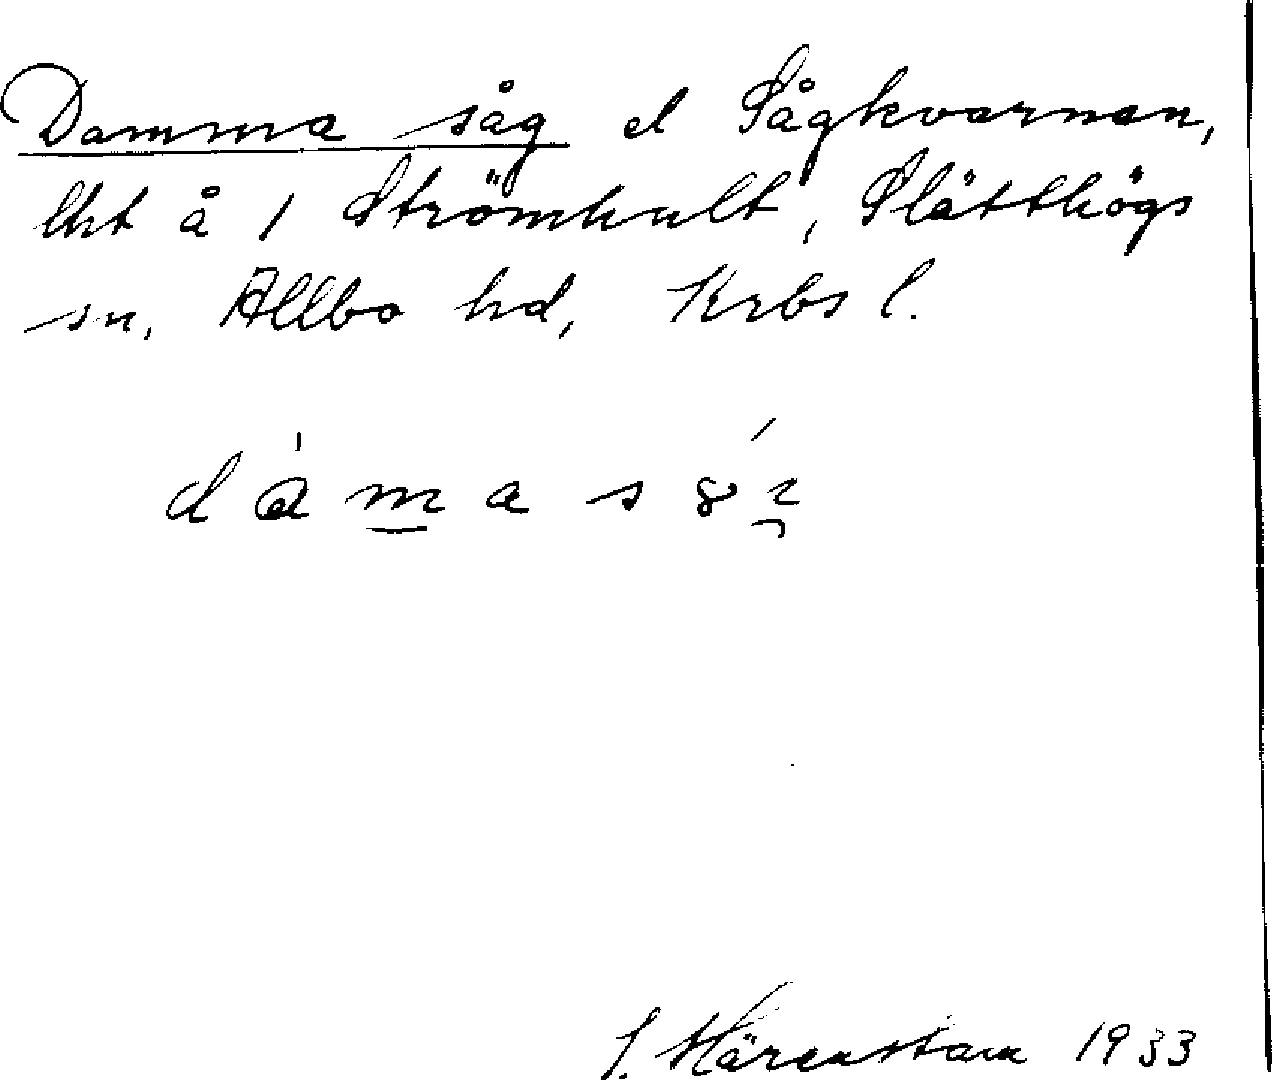 Damma såg el Sågkvarnen,
lht å 1 Strömhult, Slätthögs
sn, Allbo hd, Krbs l.
S. Härenstam 1933